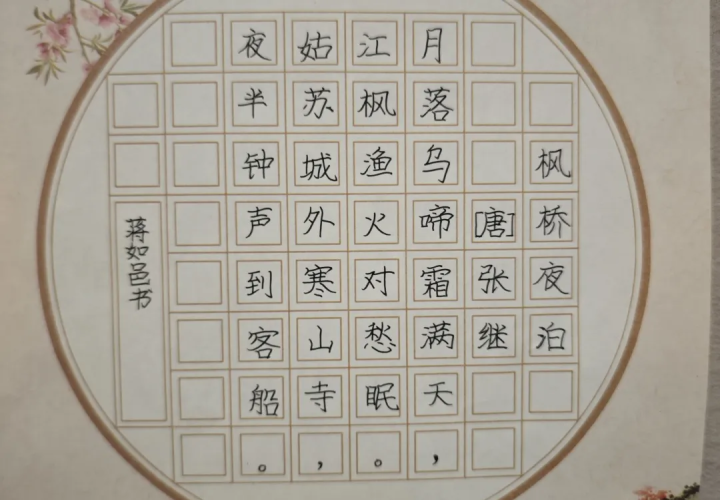 枫桥夜泊
[唐]张继
月落乌啼霜满天，
江枫渔火对愁眠。
姑苏城外寒山寺，
夜半钟声到客船。
蒋如邑书